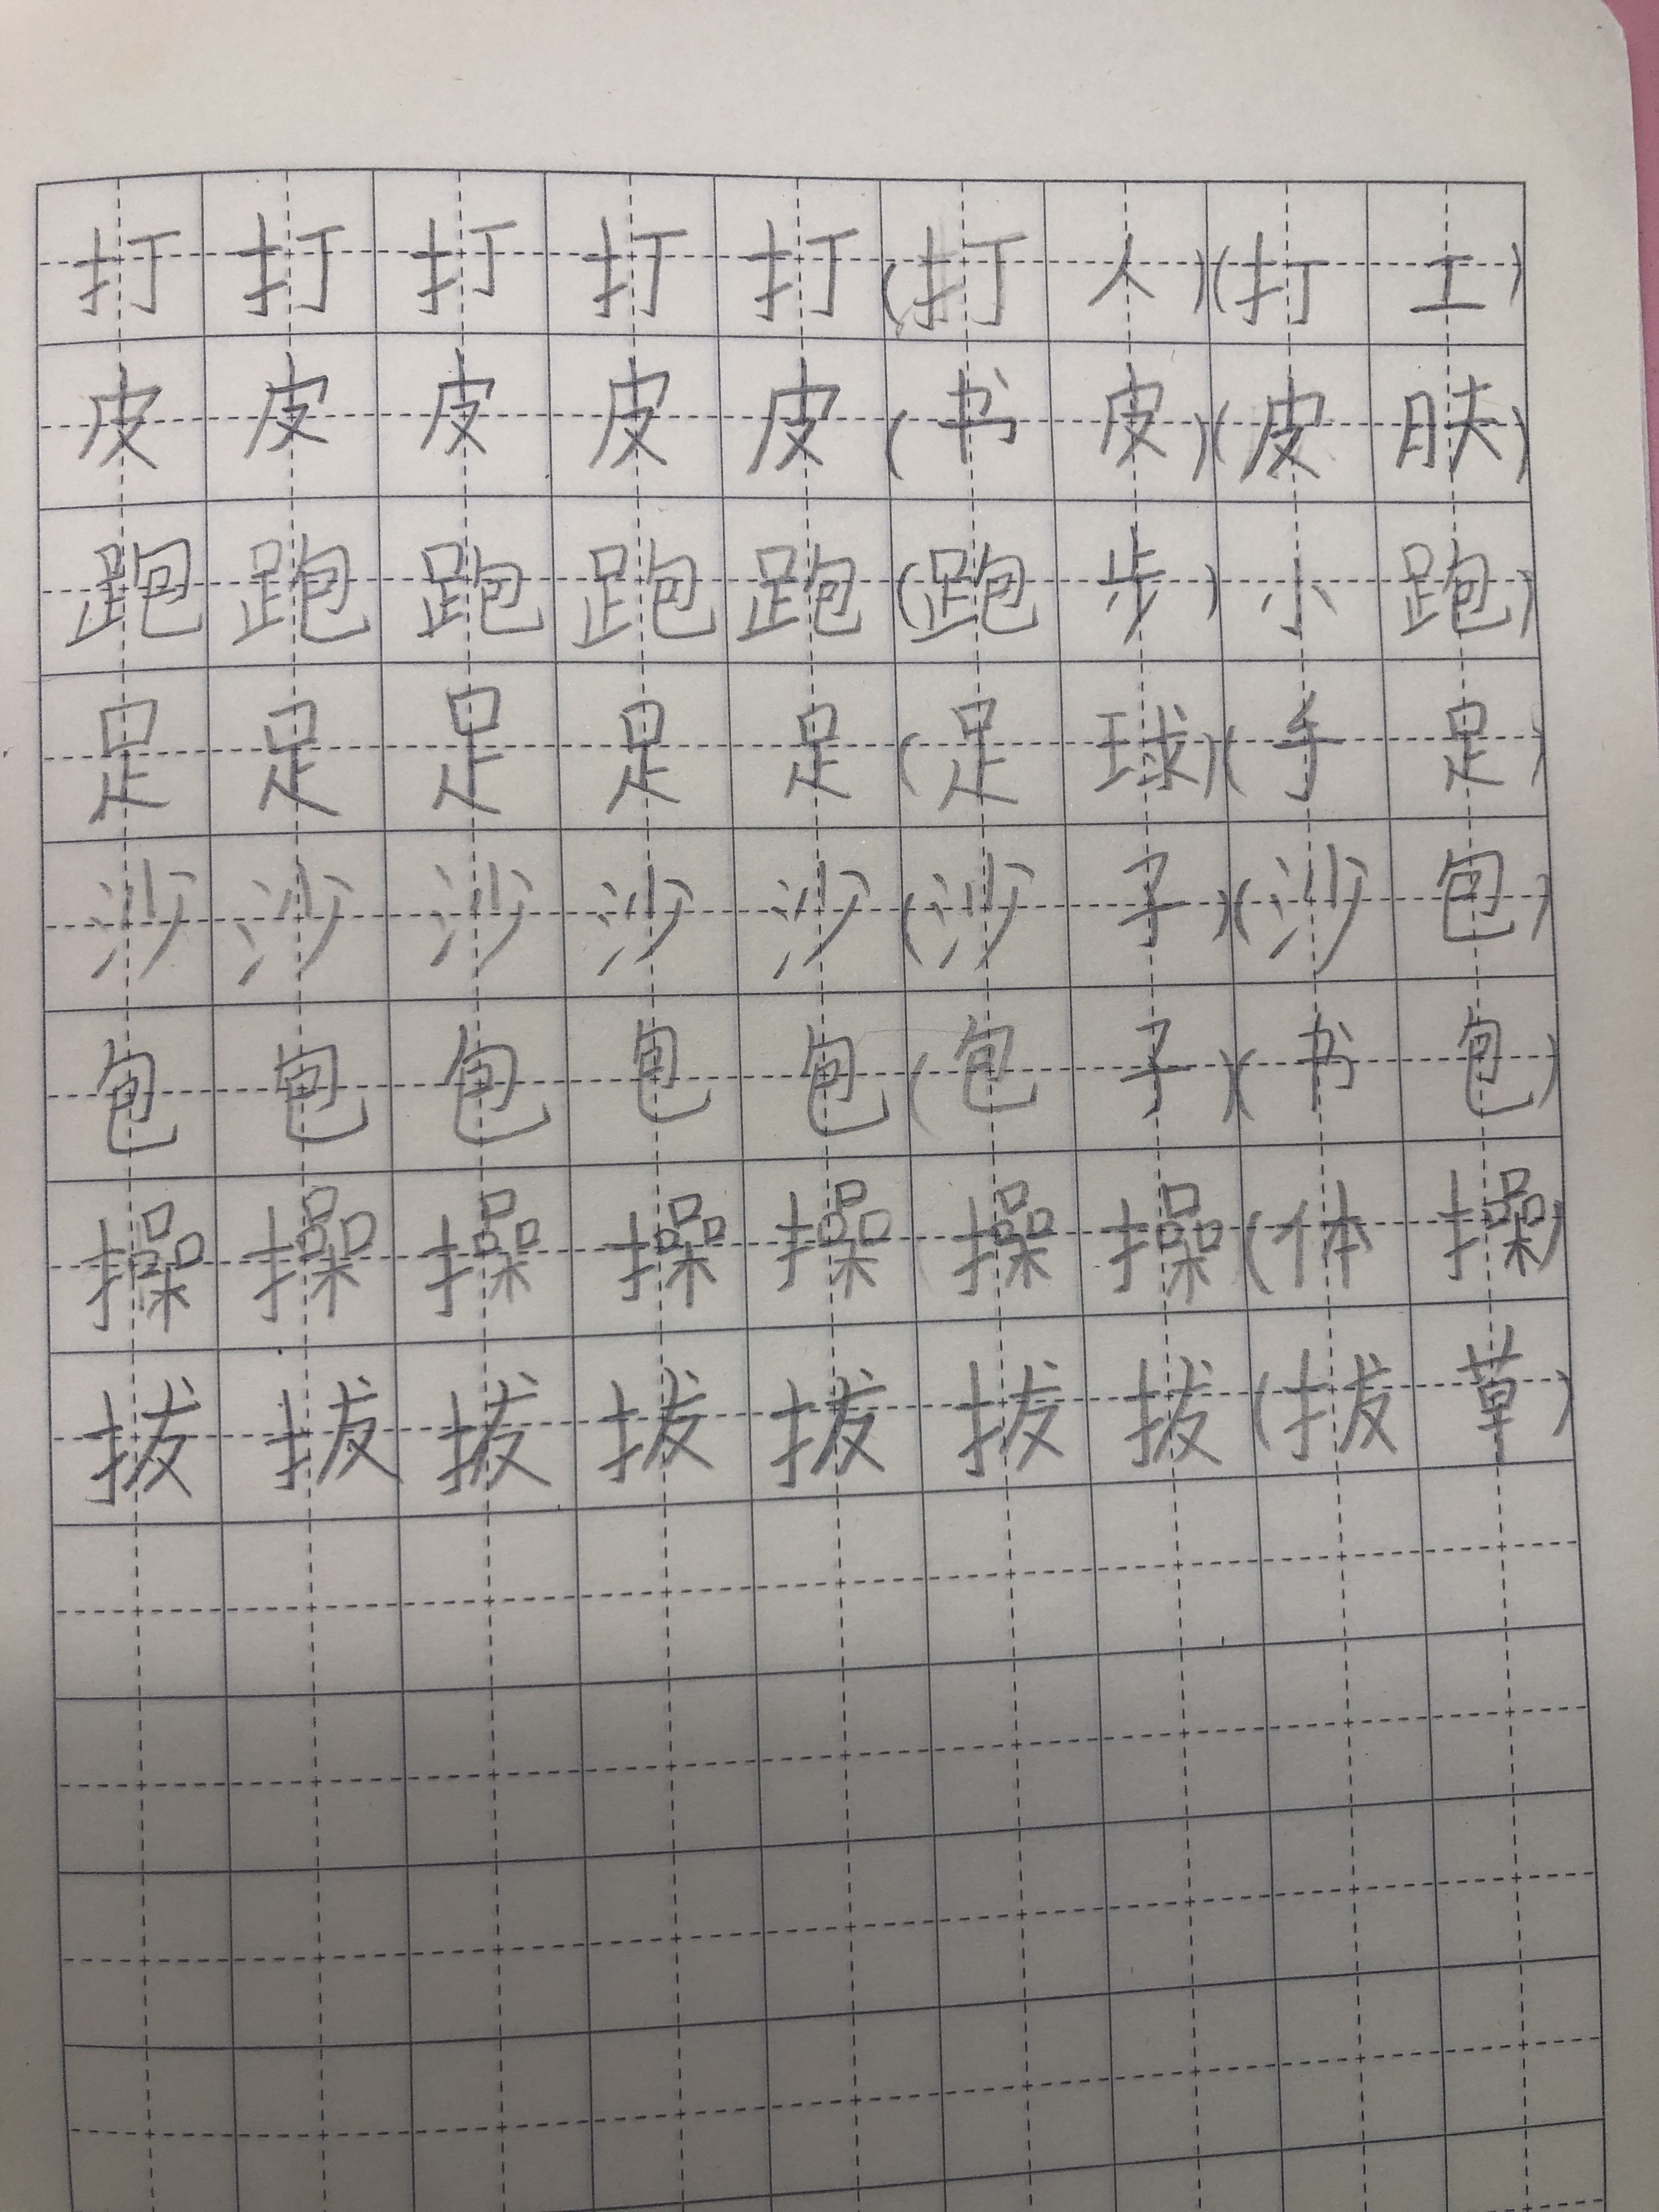 打打打打打(打人)(打工)
皮皮皮皮皮(书皮)(皮肤)
跑跑跑跑跑(跑步)小跑)
足足足足足(足球)(手足)
沙沙沙沙沙(沙子)(沙包)
包包包包包(包子)(书包)
操操操操操操操(体操)
拔拔拔拔拔拔拔(拔草)